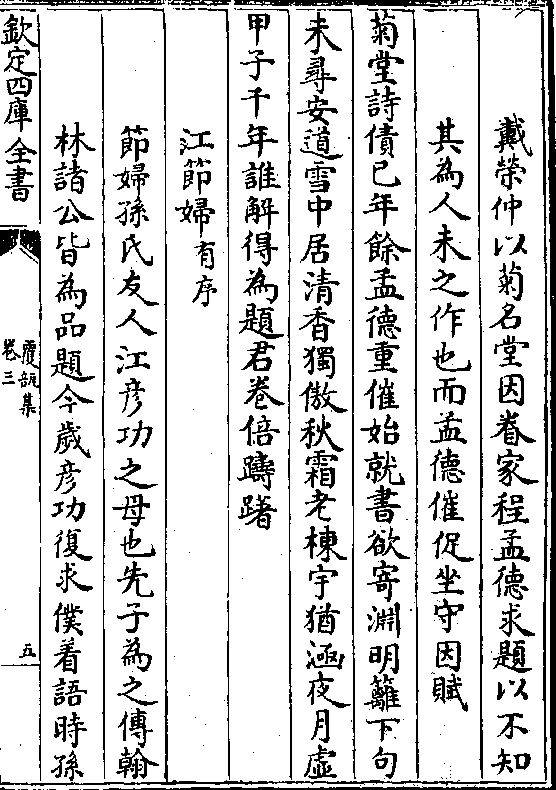 戴榮仲以菊名堂因眷家程孟德求題以不知
其為人未之作也而孟德催促坐守因賦
菊堂詩債已年餘孟德重催始就書欲寄淵明籬下句
未尋安道雪中居清香獨傲秋霜老棟宇猶涵夜月虛
甲子千年誰解得為題君卷倍躊躇
江節婦有序
節婦孫氏友人江彦功之母也先子為之傳翰
林諸公皆為品題今歲彦功復求僕着語時孫
欽定四庫全書
覆瓿集
卷三
五